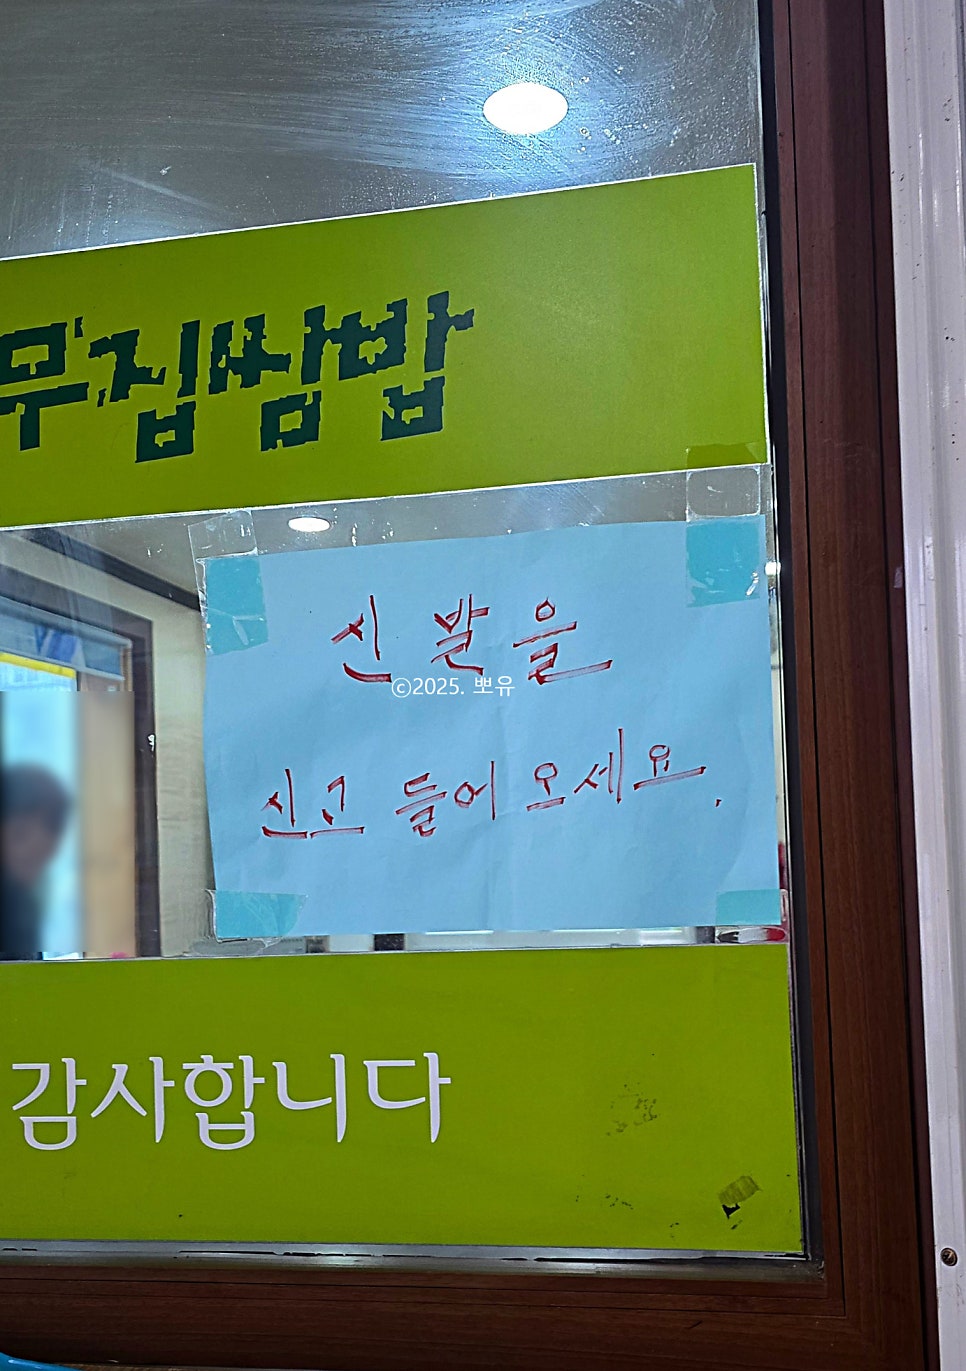 무집쌈밥
신발을
©2025. 뽀유
신고 들어오세요.
감사합니다